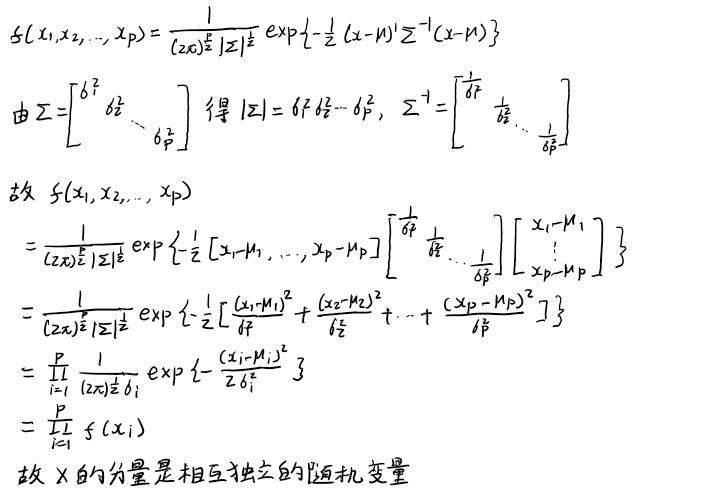 f(x₁,x₂,…,x_p)=\frac{1}{(2π)^{\frac{p}{2}}|Σ|^{\frac{1}{2}}} exp{-\frac{1}{2}(x-μ)'Σ^{-1}(x-μ)}
由Σ=\begin{bmatrix}σ_1^2 & & & \\ & σ_2^2 & & \\ & & ⋱ & \\ & & & σ_p^2\end{bmatrix} 得 |Σ|=σ_1^2σ_2^2…σ_p^2, Σ^{-1}=\begin{bmatrix}\frac{1}{σ_1^2} & & & \\ & \frac{1}{σ_2^2} & & \\ & & ⋱ & \\ & & & \frac{1}{σ_p^2}\end{bmatrix}
故 f(x₁,x₂,…,x_p)
=\frac{1}{(2π)^{\frac{p}{2}}|Σ|^{\frac{1}{2}}} exp{-\frac{1}{2}[x₁-μ₁,…,x_p-μ_p]\begin{bmatrix}\frac{1}{σ_1^2} & & & \\ & \frac{1}{σ_2^2} & & \\ & & ⋱ & \\ & & & \frac{1}{σ_p^2}\end{bmatrix}\begin{bmatrix}x₁-μ₁ \\ ⋮ \\ x_p-μ_p\end{bmatrix}}
=\frac{1}{(2π)^{\frac{p}{2}}|Σ|^{\frac{1}{2}}} exp{-\frac{1}{2}[\frac{(x₁-μ₁)^2}{σ_1^2}+\frac{(x₂-μ₂)^2}{σ_2^2}+…+\frac{(x_p-μ_p)^2}{σ_p^2}]}
=\prod_{i=1}^{p}\frac{1}{(2π)^{\frac{1}{2}}σ_i} exp{-\frac{(x_i-μ_i)^2}{2σ_i^2}}
=\prod_{i=1}^{p} f(x_i)
故X的分量是相互独立的随机变量